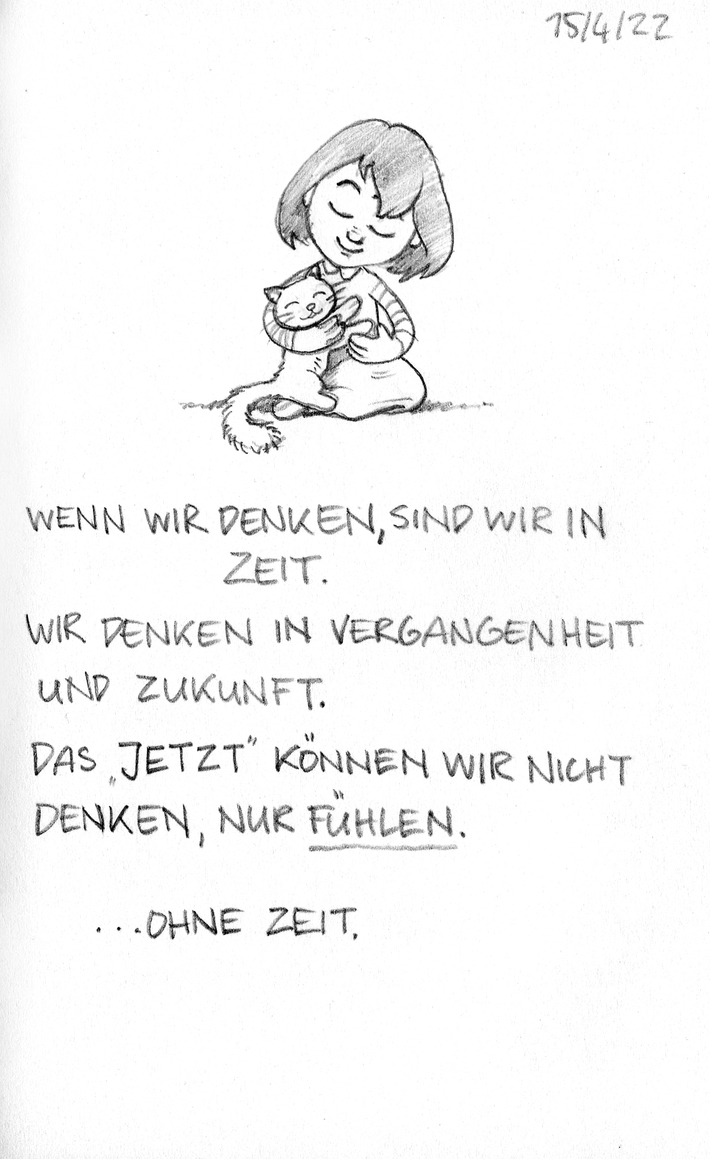 15/4/22
WENN WIR DENKEN, SIND WIR IN
ZEIT.
WIR DENKEN IN VERGANGENHEIT
UND ZUKUNFT.
DAS „JETZT" KÖNNEN WIR NICHT
DENKEN, NUR FÜHLEN.
...OHNE ZEIT.